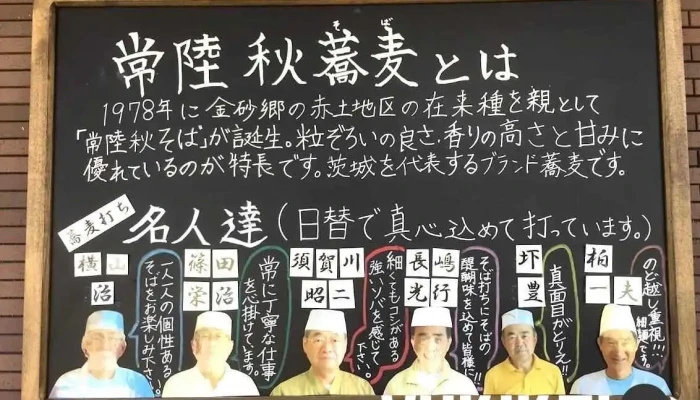 常陸秋蕎麦とは
そば
1978年に金砂郷の赤土地区の在来種を親として
「常陸秋そば」が誕生。粒ぞろいの良さ・香りの高さと甘みに
優れているのが特長です。茨城を代表するブランド蕎麦です。
蕎麦打ち
名人達(日替で真心込めて打っています。)
横山
治
一人一人の個性ある
そばをお楽しみ下さい。
篠田
栄治
常に丁寧な仕事
を心掛けています。
須賀川
昭二
細くてもコシがある
強いソバを感じて
下さい。
長嶋
光行
そば打ちにそばの
醍醐味を込めて皆様に!!
圷
豊
真面目がとりえ!!
柏
一夫
のど越し重視!!!
細麺です。